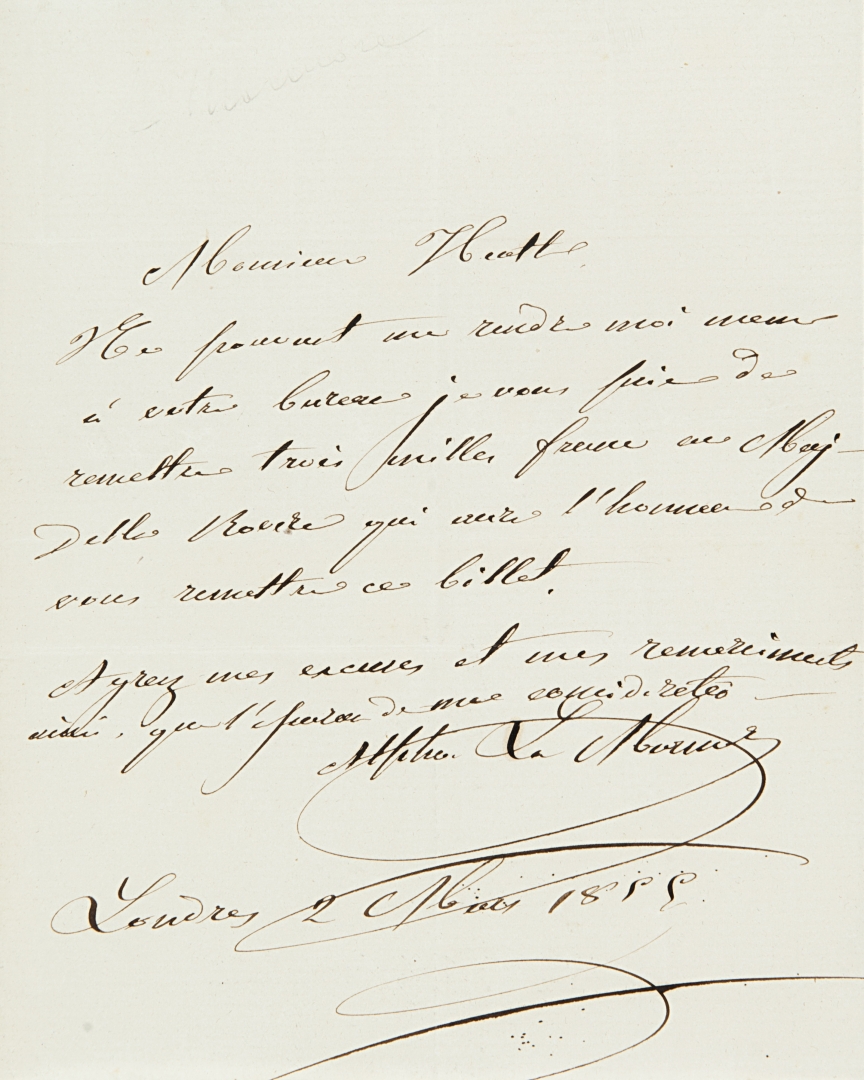 Monsieur Heath
Ne pouvant me rendre moi meme
à votre bureau je vous prie de
remettre trois milles franc au Maj
Della Rovere qui aura l'honneur de
vous remettre ce billet.
Agreez mes excuses et mes remerciments
ainsi, que l'expression de ma consideration
Alph. La Marmora
Londres 2 Mars 1855